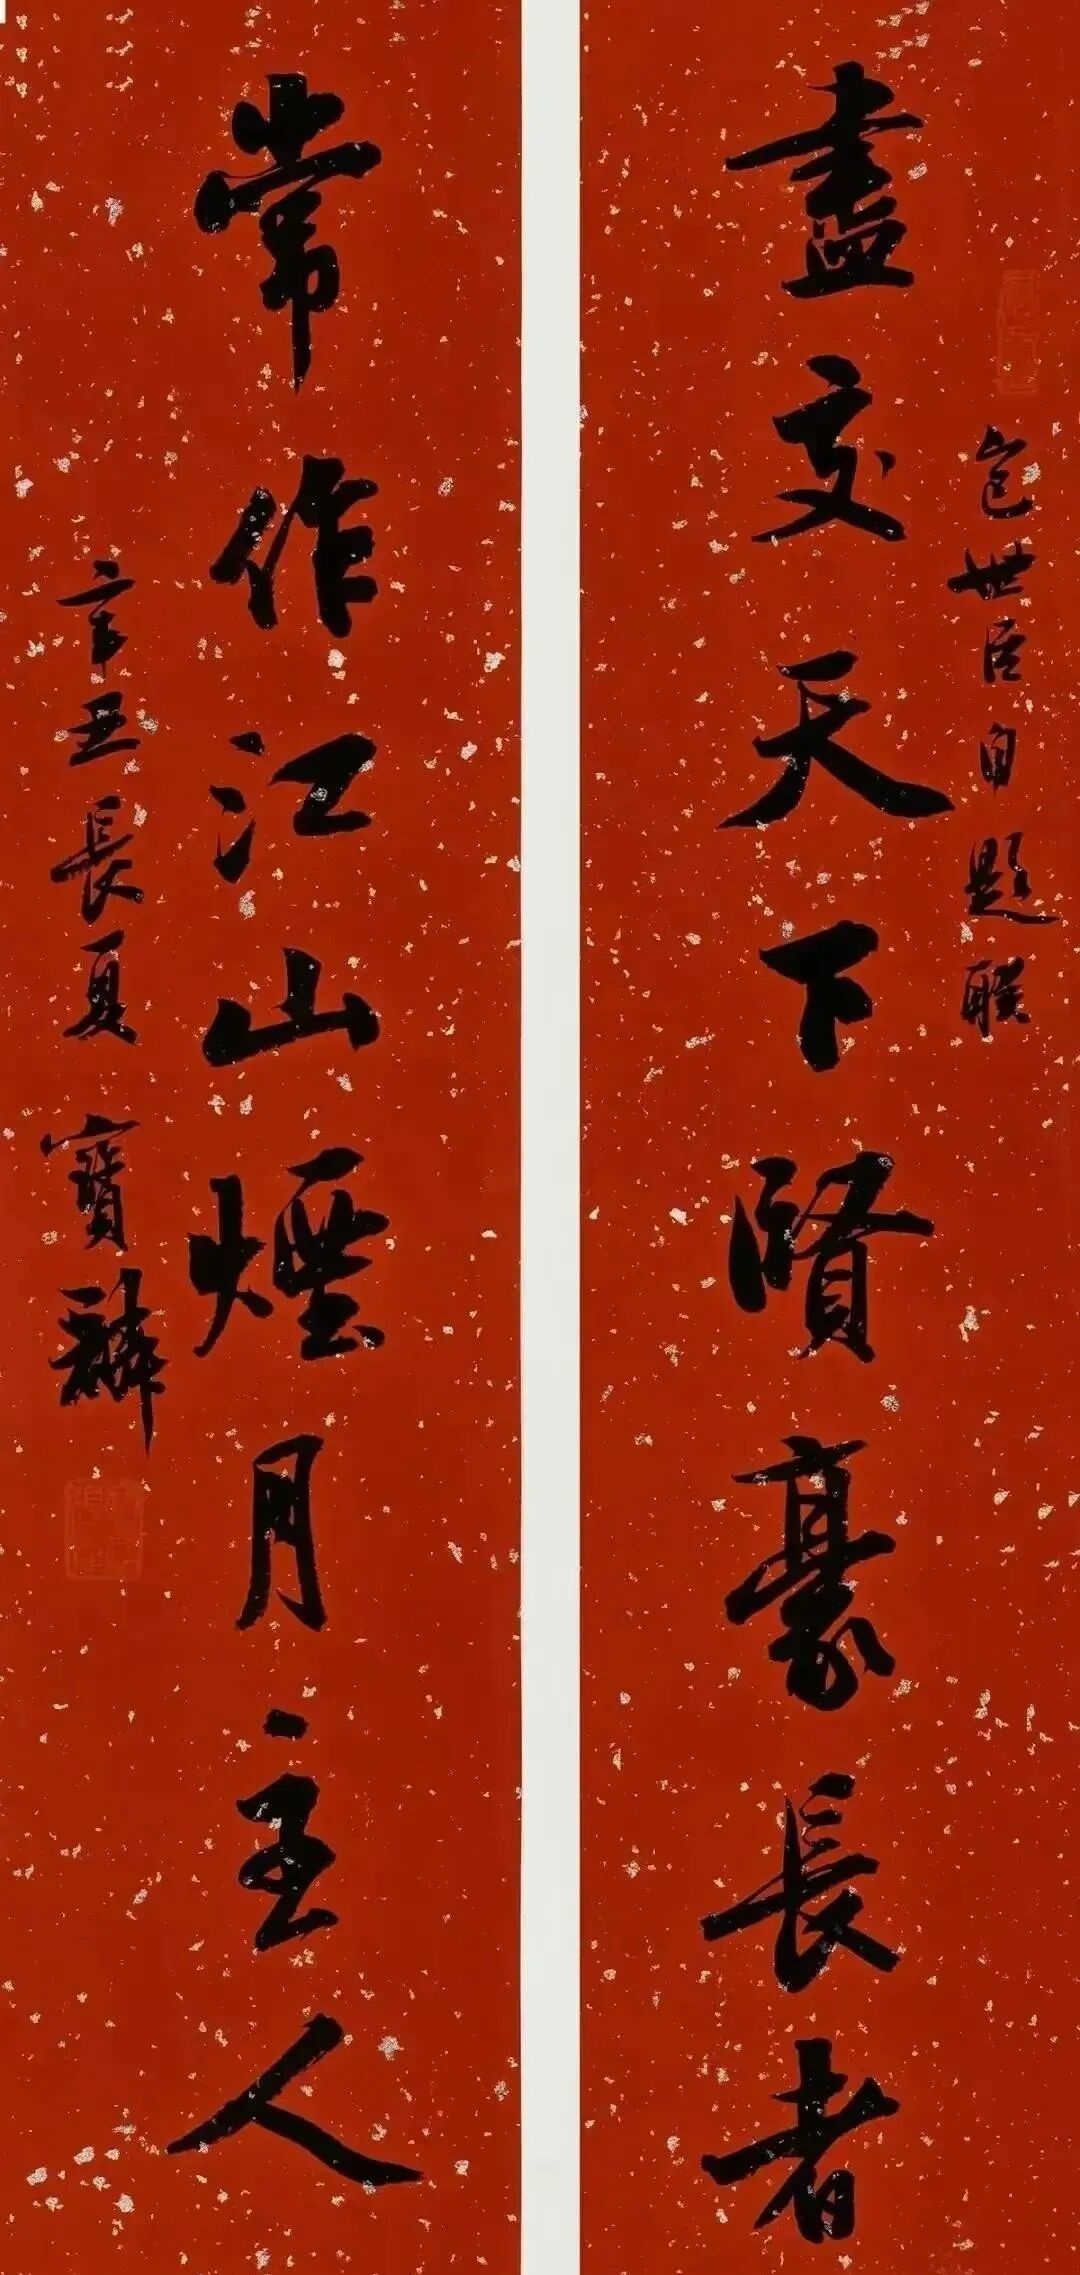 盡交天下賢豪長者
包世臣自題聯
常作江山煙月主人
辛丑長夏 寶麟